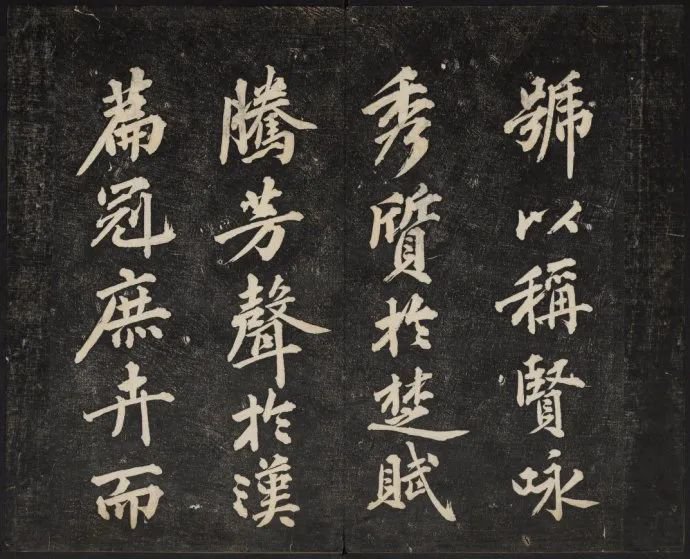 號以稱賢咏
秀質於楚賦
騰芳聲於漢
篇冠庶卉而